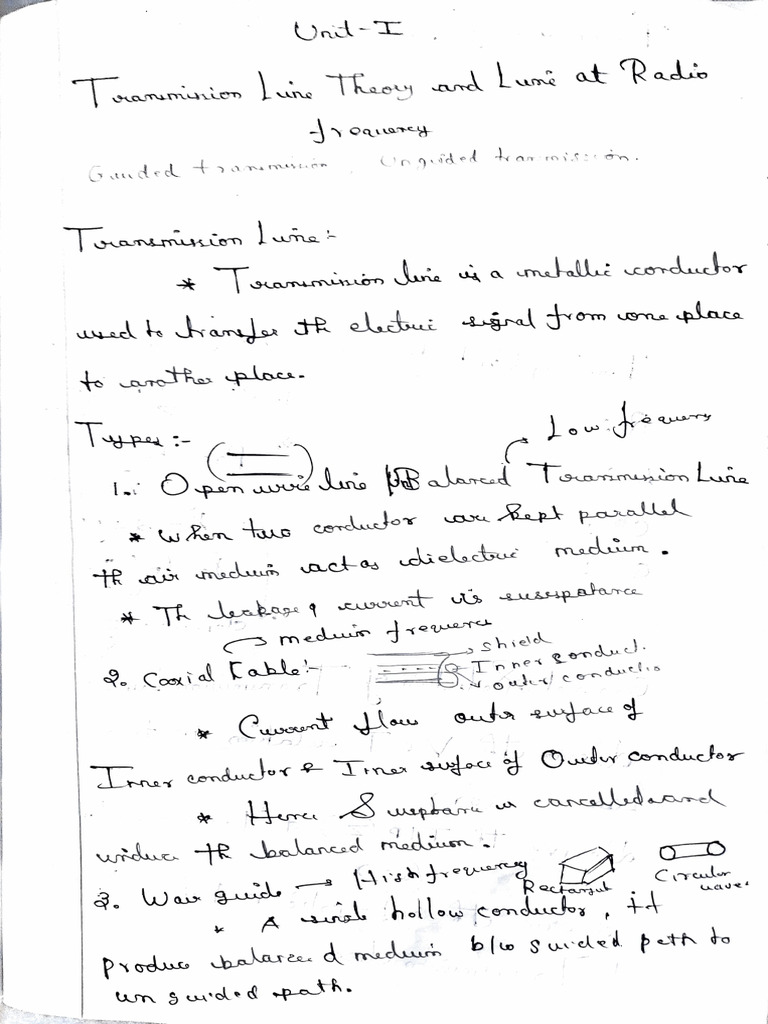 Unit-I
Transmission Line Theory and Line at Radio
frequency
Guided transmission Unguided transmission.
Transmission Line:-
* Transmission line is a metallic conductor
used to transfer th electric signal from one place
to another place.
Types:-
Low frequency
1. Open wire line Balanced Transmission Line
* When two conductor are kept parallel
th air medium act as dielectric medium.
* Th leakage of current is
medium frequency
2. Coaxial Cable:-
shield
Inner conduct.
outer conductio
* Current flow outer surface of
Inner conductor & Inner surface of Outer conductor
* Hence is cancelled and
th balanced medium.
3. Wave guide → High frequency
Rectangul
Circular
waves
* A single hollow conductor, it
produce balanced medium b/w guided path to
un guided path.